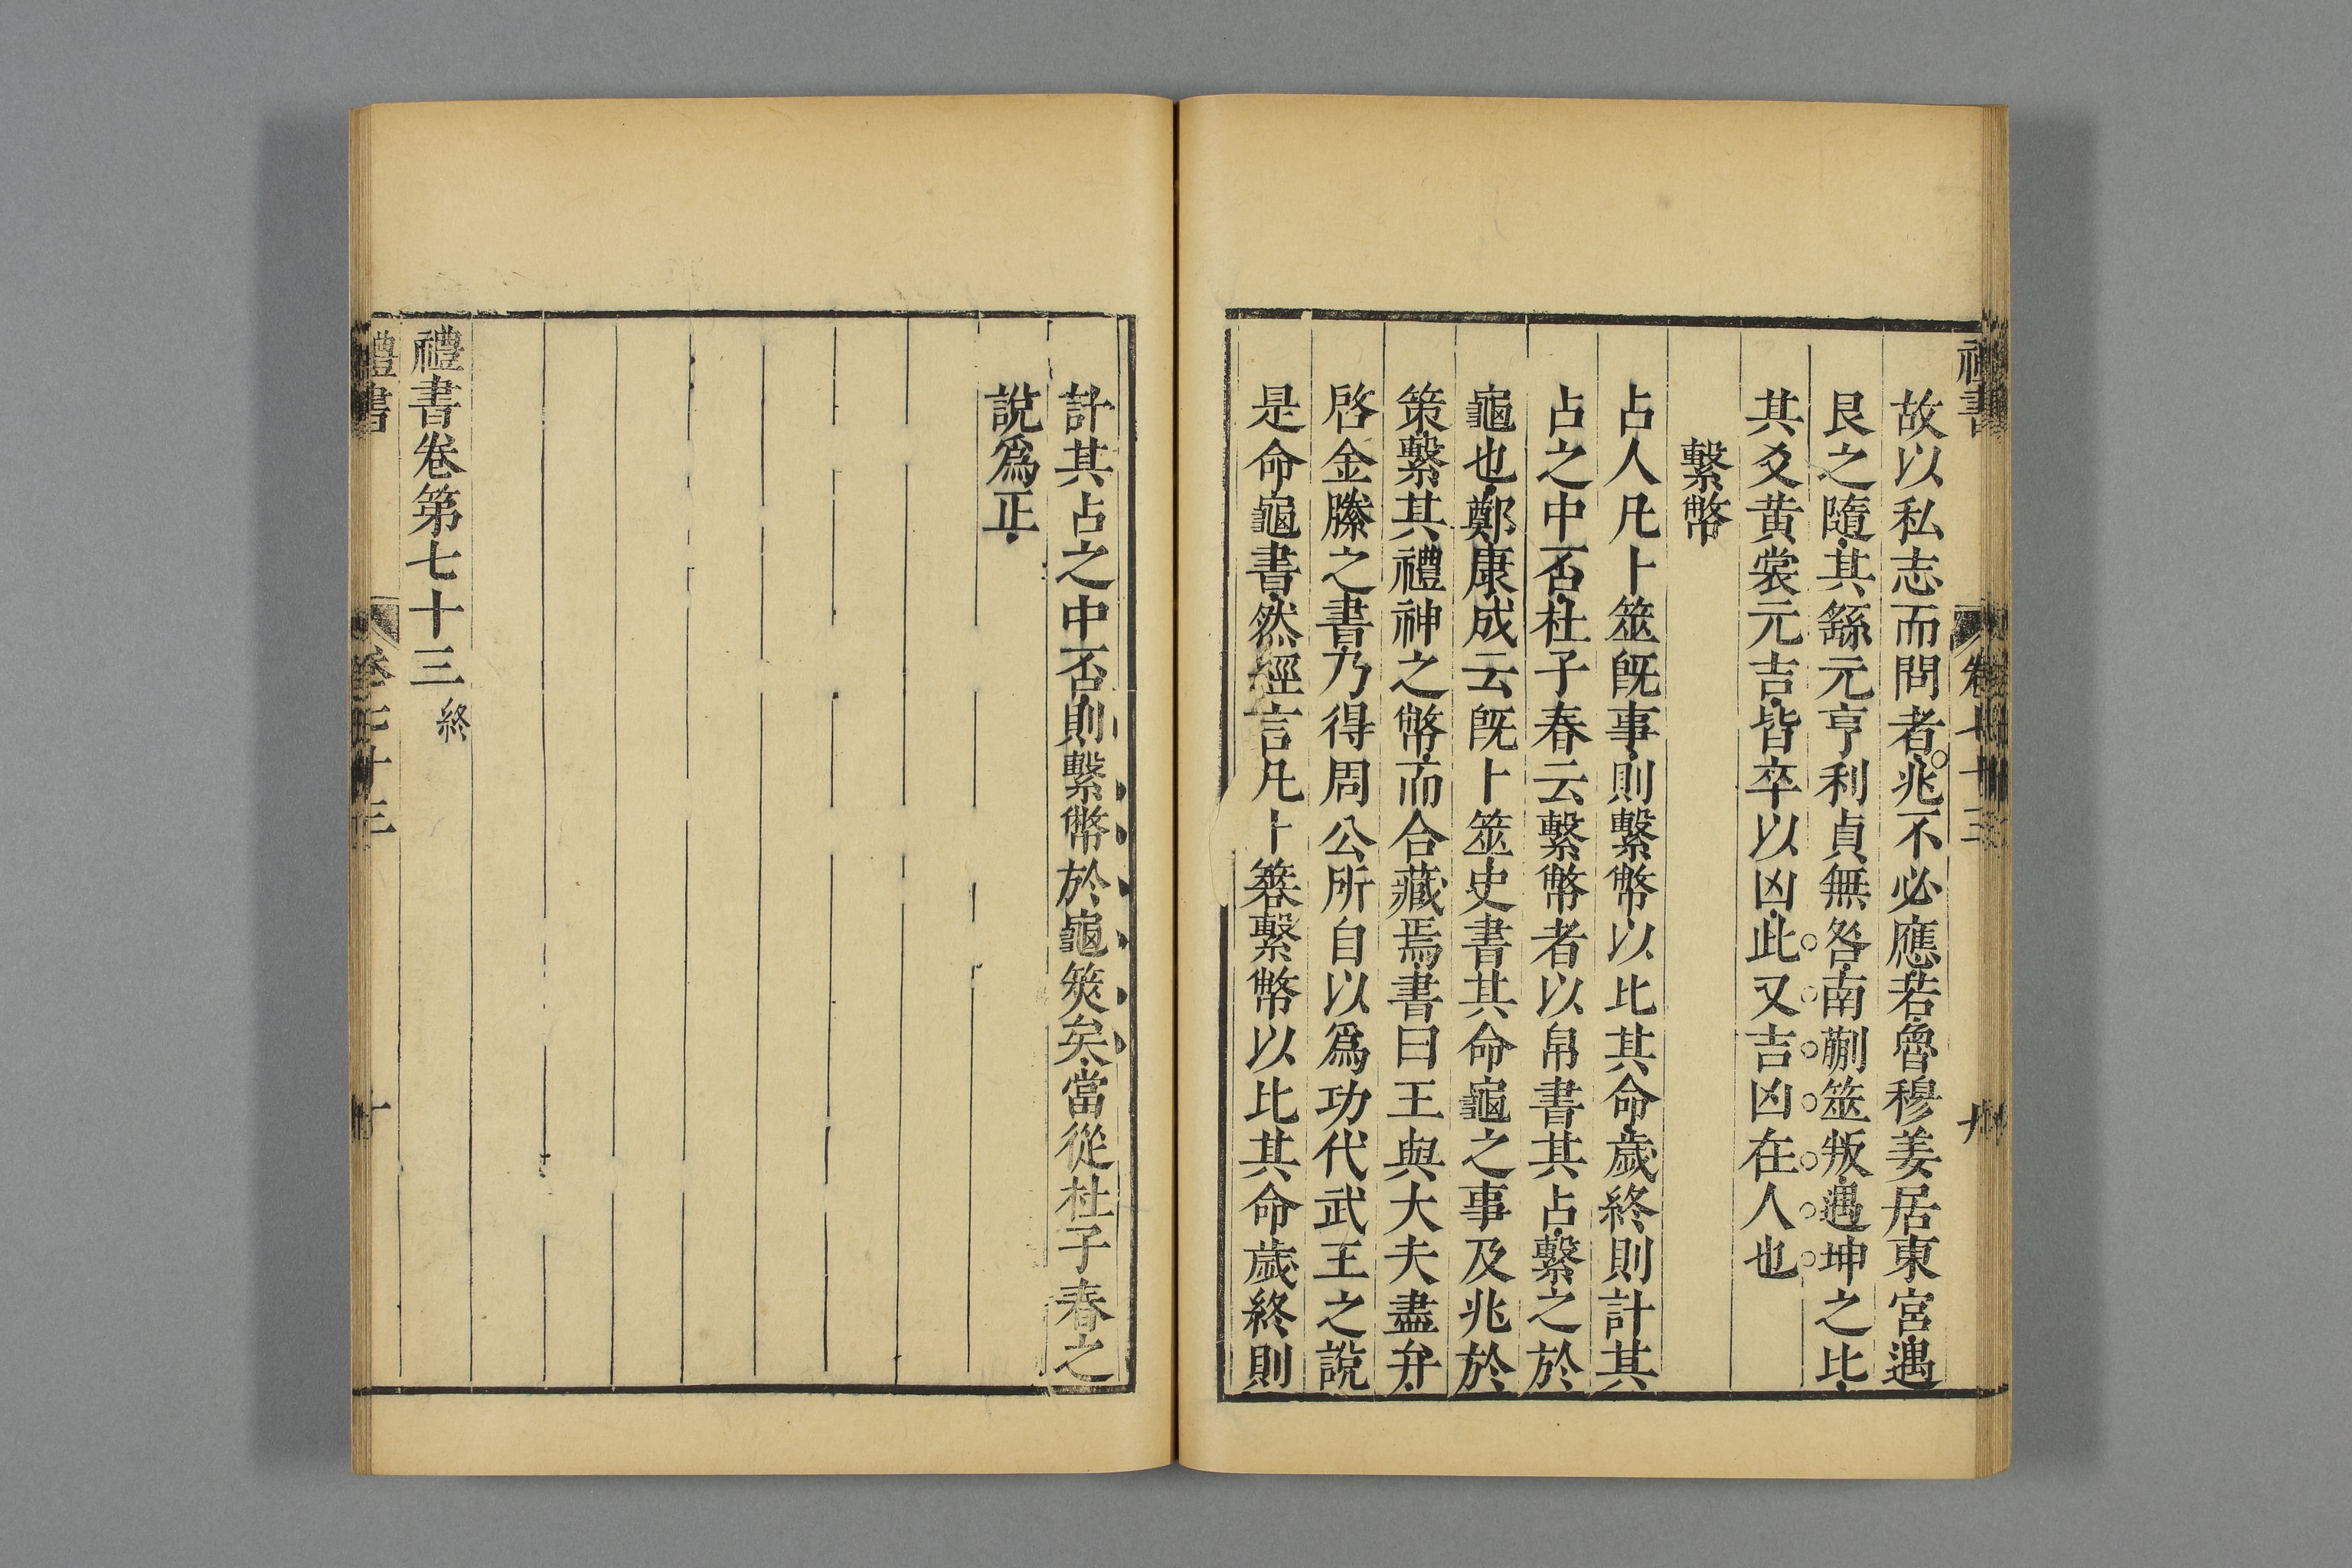 禮書 卷七十三 九
故以私志而問者兆不必應若魯穆姜居東宮遇
艮之隨其繇元亨利貞無咎南蒯筮叛遇坤之比
其爻黃裳元吉皆卒以凶此又吉凶在人也
繫幣
占人凡卜筮旣事則繫幣以比其命歲終則計其
占之中否杜子春云繫幣者以帛書其占繫之於
龜也鄭康成云旣卜筮史書其命龜之事及兆於
策繫其禮神之幣而合藏焉書曰王與大夫盡弁
啓金縢之書乃得周公所自以爲功代武王之說
是命龜書然經言凡卜簭繫幣以比其命歲終則
計其占之中否則繫幣於龜筴矣當從杜子春之
說爲正
禮書卷第七十三終
禮書 卷七十三 十